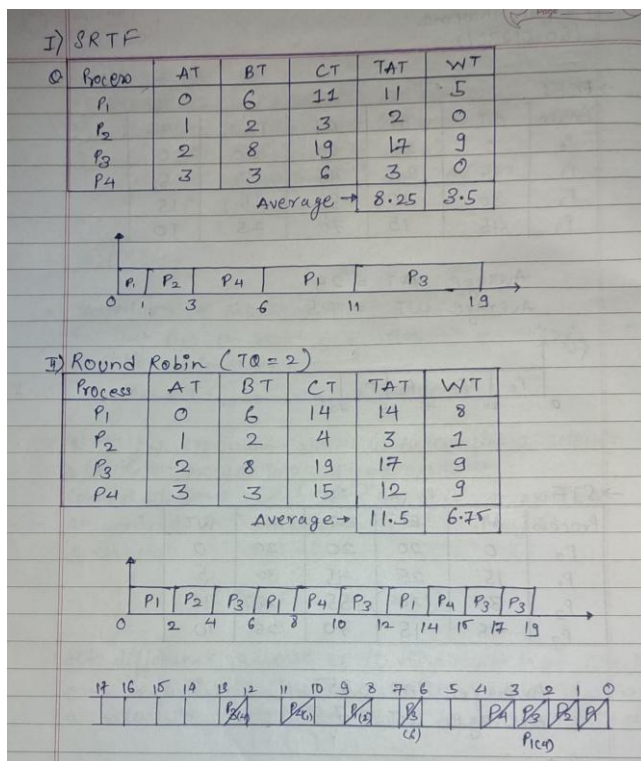 I) SRTF
Q Process AT BT CT TAT WT
P1 0 6 11 11 5
P2 1 2 3 2 0
P3 2 8 19 17 9
P4 3 3 6 3 0
Average → 8.25 3.5
P1 P2 P4 P1 P3
0 1 3 6 11 19
II) Round Robin (TQ = 2)
Process AT BT CT TAT WT
P1 0 6 14 14 8
P2 1 2 4 3 1
P3 2 8 19 17 9
P4 3 3 15 12 9
Average → 11.5 6.75
P1 P2 P3 P1 P4 P3 P1 P4 P3 P3
0 2 4 6 8 10 12 14 15 17 19
17 16 15 14 13 12 11 10 9 8 7 6 5 4 3 2 1 0
P4 P3 P2 P1
P1(4)